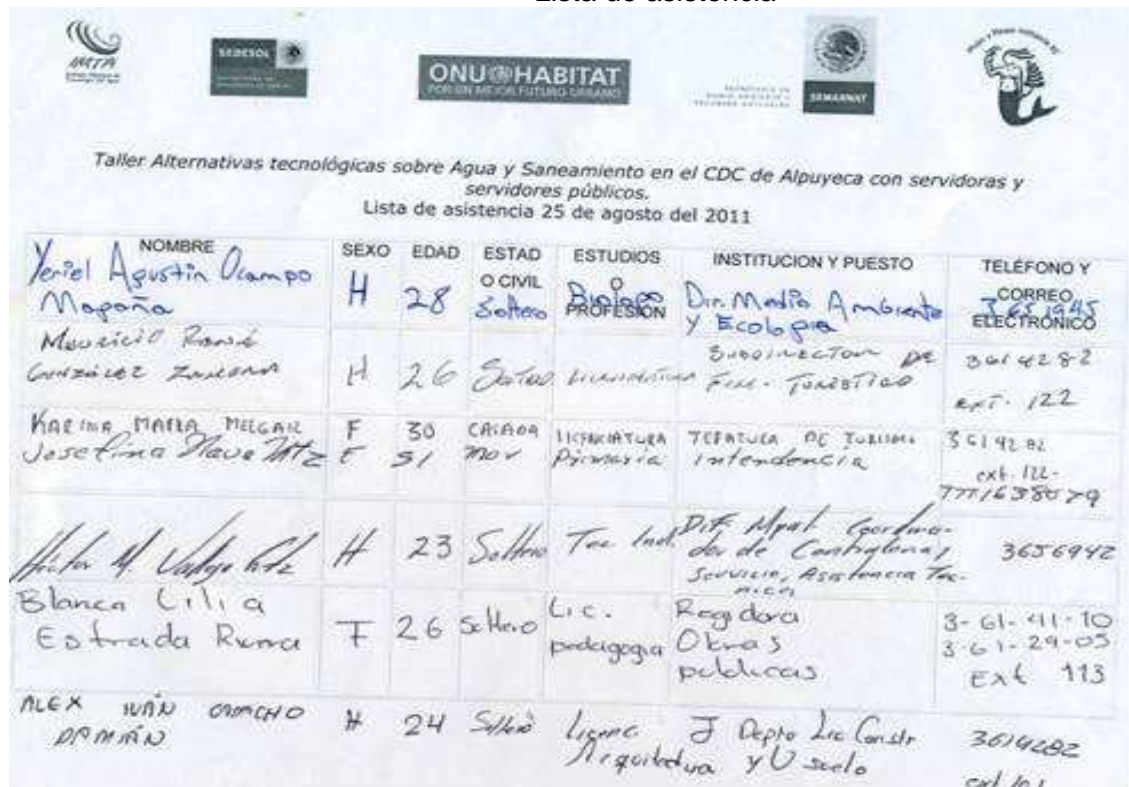 Lista de asistencia
IMTA
SEDESOL
ONU HABITAT
POR UN MEJOR FUTURO URBANO
SEMARNAT
Taller Alternativas tecnológicas sobre Agua y Saneamiento en el CDC de Alpuyeca con servidoras y
servidores públicos.
Lista de asistencia 25 de agosto del 2011
NOMBRE SEXO EDAD ESTAD O CIVIL ESTUDIOS O PROFESIÓN INSTITUCION Y PUESTO TELÉFONO Y CORREO ELECTRÓNICO
Yeriel Agustín Ocampo
Magaña H 28 Soltero Biologo Dir. Medio Ambiente
Y Ecologia 3651945
Mauricio René
González H 26 Soltero Licenciatura Subdirector de
Turístico 3614282
ext. 122
KARINA MARIA MELGAR F 30 CASADA LICENCIATURA JEFATURA DE TURISMO 3614282
ext. 122-
Josefina Nava Mtz F 51 Primaria intendencia
Hector M. H 23 Soltero Tec Ind. Dif Mpal Coordina-
dor de
Servicio, Asistencia Tec-
nica 3656942
Blanca Lilia
Estrada F 26 Soltero Lic.
pedagogia Regidora
Obras
publicas 3-61-41-10
3-61-29-05
Ext 113
ALEX IVÁN CAMACHO
DAMIÁN H 24 Soltero Licenc
Arquitectura J Depto Lic Constr
y U suelo 3614282
ext 101